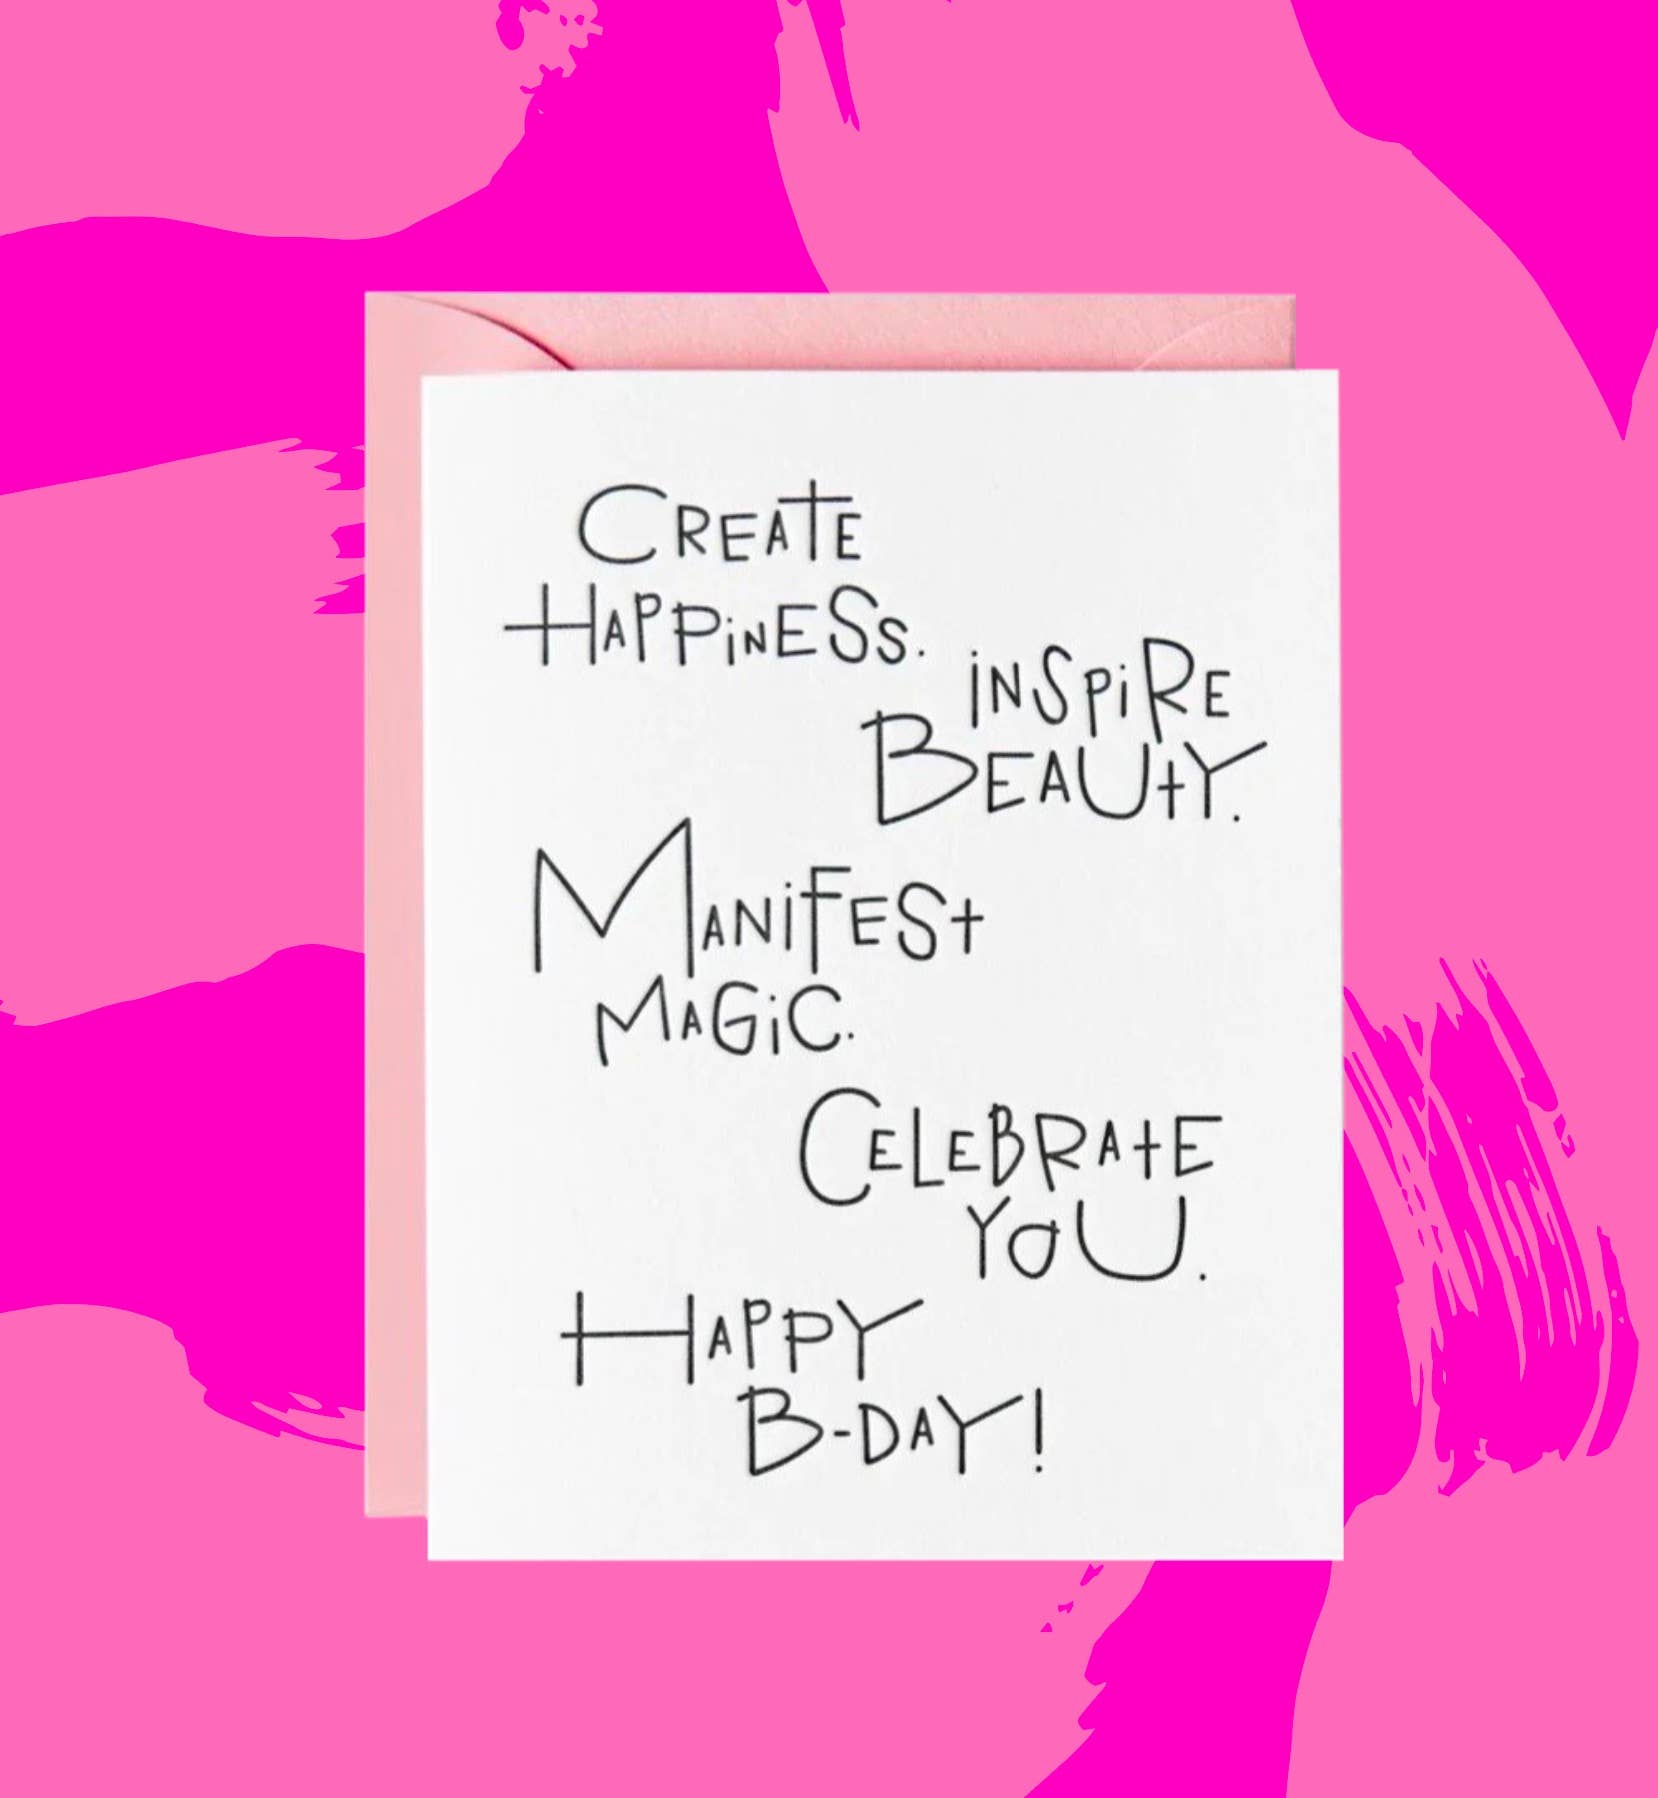 CREATE
HAPPiNESS.
iNSPiRE
BEAUtY.
MANiFESt
MAGiC.
CELEBRAtE
YOU.
HAPPY
B-DAY!